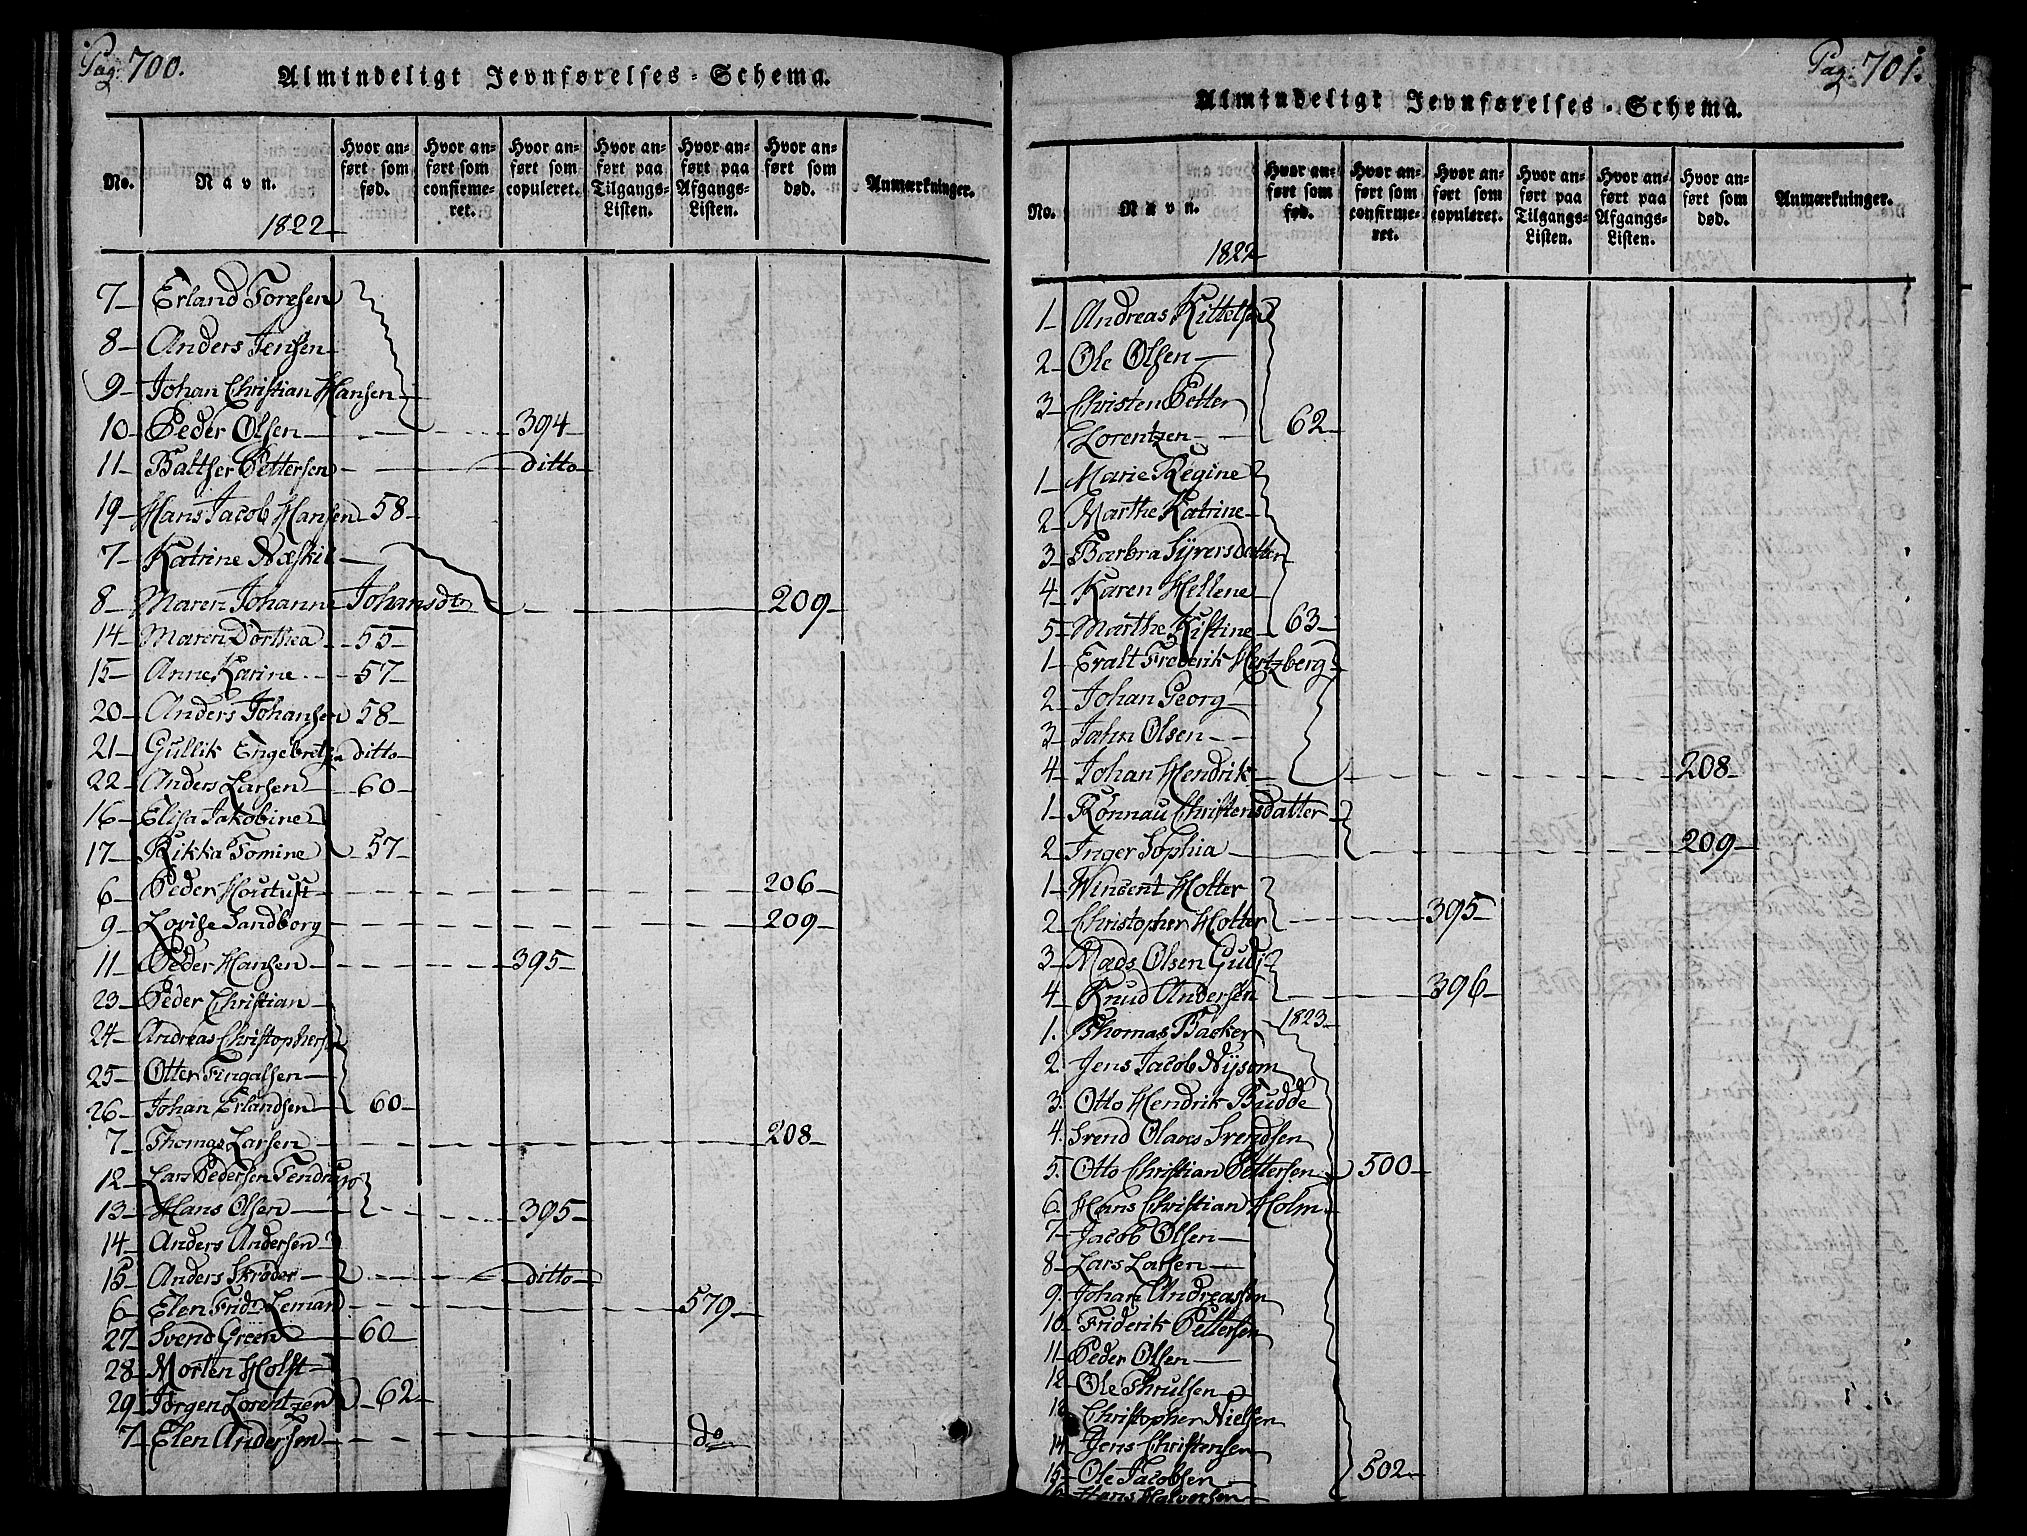 Pag: 700.
Almindeligt Jevnførelses-Schema.
No.
Navn.
Hvor anført som fød.
Hvor anført som confirmeret.
Hvor anført som copuleret.
Hvor anført paa Tilgangs-Listen.
Hvor anført paa Afgangs-Listen.
Hvor anført som død.
Anmærkninger.
1822
7 Erland Toresen
8 Anders Jensen
9 Johan Christian Hansen
10 Peder Olsen 394
11 Baltser Pettersen ditto
19 Hans Jacob Hansen 58
7 Katrine Næskil
8 Maren Johanne Johansdtr 209
14 Maren Dorthea 55
15 Anne Karine 57
20 Anders Johansen 58
21 Gullik Engebretsen ditto
22 Anders Larsen 60
16 Elisa Jakobine
17 Rikka Tomine 57
6 Peder Houtust 206
9 Lovise Sandborg 209
11 Peder Hansen 395
23 Peder Christian
24 Andreas Christophersen
25 Otter Fingalsen
26 Johan Erlandsen 60
7 Thomas Larsen 208
12 Lars Pedersen
13 Hans Olsen 395
14 Anders Andersen
15 Anders Skrøder ditto
6 Elen Frid. Leman 579
27 Svend Green 60
28 Morten Holst
29 Jørgen Lorentzen 62
7 Elen Andersen do
Pag: 701.
Almindeligt Jevnførelses-Schema.
No.
Navn.
Hvor anført som fød.
Hvor anført som confirmeret.
Hvor anført som copuleret.
Hvor anført paa Tilgangs-Listen.
Hvor anført paa Afgangs-Listen.
Hvor anført som død.
Anmærkninger.
1822
1 Andreas Kittelsen
2 Ole Olsen
3 Christen Petter
Lorentzen 62
1 Marie Regine
2 Marthe Katrine
3 Barbra Syversdatter
4 Karen Hellene
5 Marthe Kistine 63
1 Evalt Frederik Hertzberg
2 Johan Georg
3 John Olsen
4 Johan Hendrik 208
1 Rønnau Christensdatter
2 Inger Sophia 209
1 Wincent Hotter
2 Christopher Hotter 395
3 Mads Olsen Gudi
4 Knud Andersen 396
1823
1. Thomas Backer
2. Jens Jacob Nysom
3. Otto Hendrik Budde
4. Svend Olaves Svendsen
5. Otto Christian Pettersen 500
6. Hans Christian Holm
7 Jacob Olsen
8 Lars Larsen
9. Johan Andreassen
10 Friderik Pettersen
11 Peder Olsen
12 Ole Thrulsen
13 Christopher Nielsen
14 Jens Christensen
15 Ole Jacobsen 502
16 Hans Halvorsen